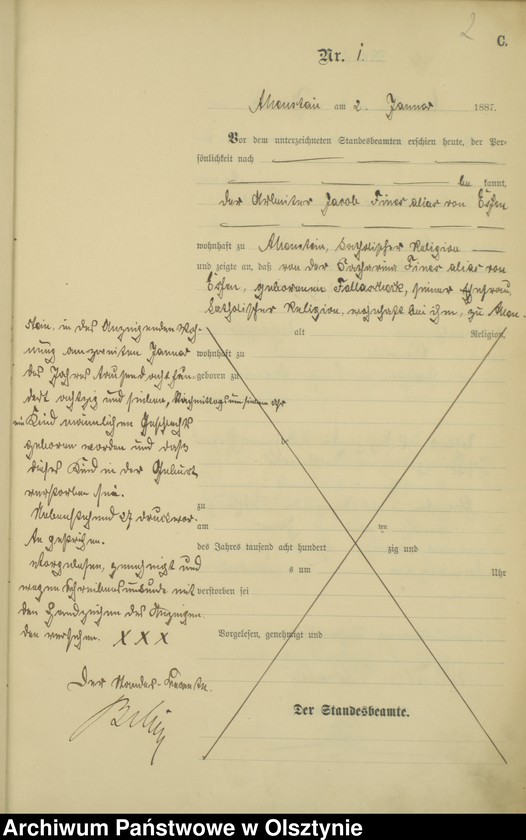 2
C.
Nr. 1.
Allenstein am 2. Januar 1887.
Vor dem unterzeichneten Standesbeamten erschien heute, der Per-
sönlichkeit nach
be kannt,
der Arbeiter Jacob Fines alias von
wohnhaft zu Allenstein, katholischer Religion
und zeigte an, daß von der Catharina Fines alias von
geborenen seiner Ehefrau,
katholischer Religion, wohnhaft bei ihm, zu Allen-
stein, in des Anzeigenden Woh-
nung am zweiten Januar
des Jahres tausend acht hun-
dert achtzig und sieben, Nachmittags um sieben Uhr
ein Kind männlichen Geschlechts
geboren worden und daß
dieses Kind in der Geburt
verstorben sei.
Nebenstehend 27 Druckwor-
te gestrichen.
Vorgelesen, genehmigt und
wegen Schreibensunkunde mit
den Handzeichen des Anzeigen-
den versehen. X X X
Der Standes-Beamte.
alt Religion,
wohnhaft zu
geboren zu
zu
am ten
des Jahres tausend acht hundert zig und
s um Uhr
verstorben sei
Vorgelesen, genehmigt und
Der Standesbeamte.
Archiwum Państwowe w Olsztynie